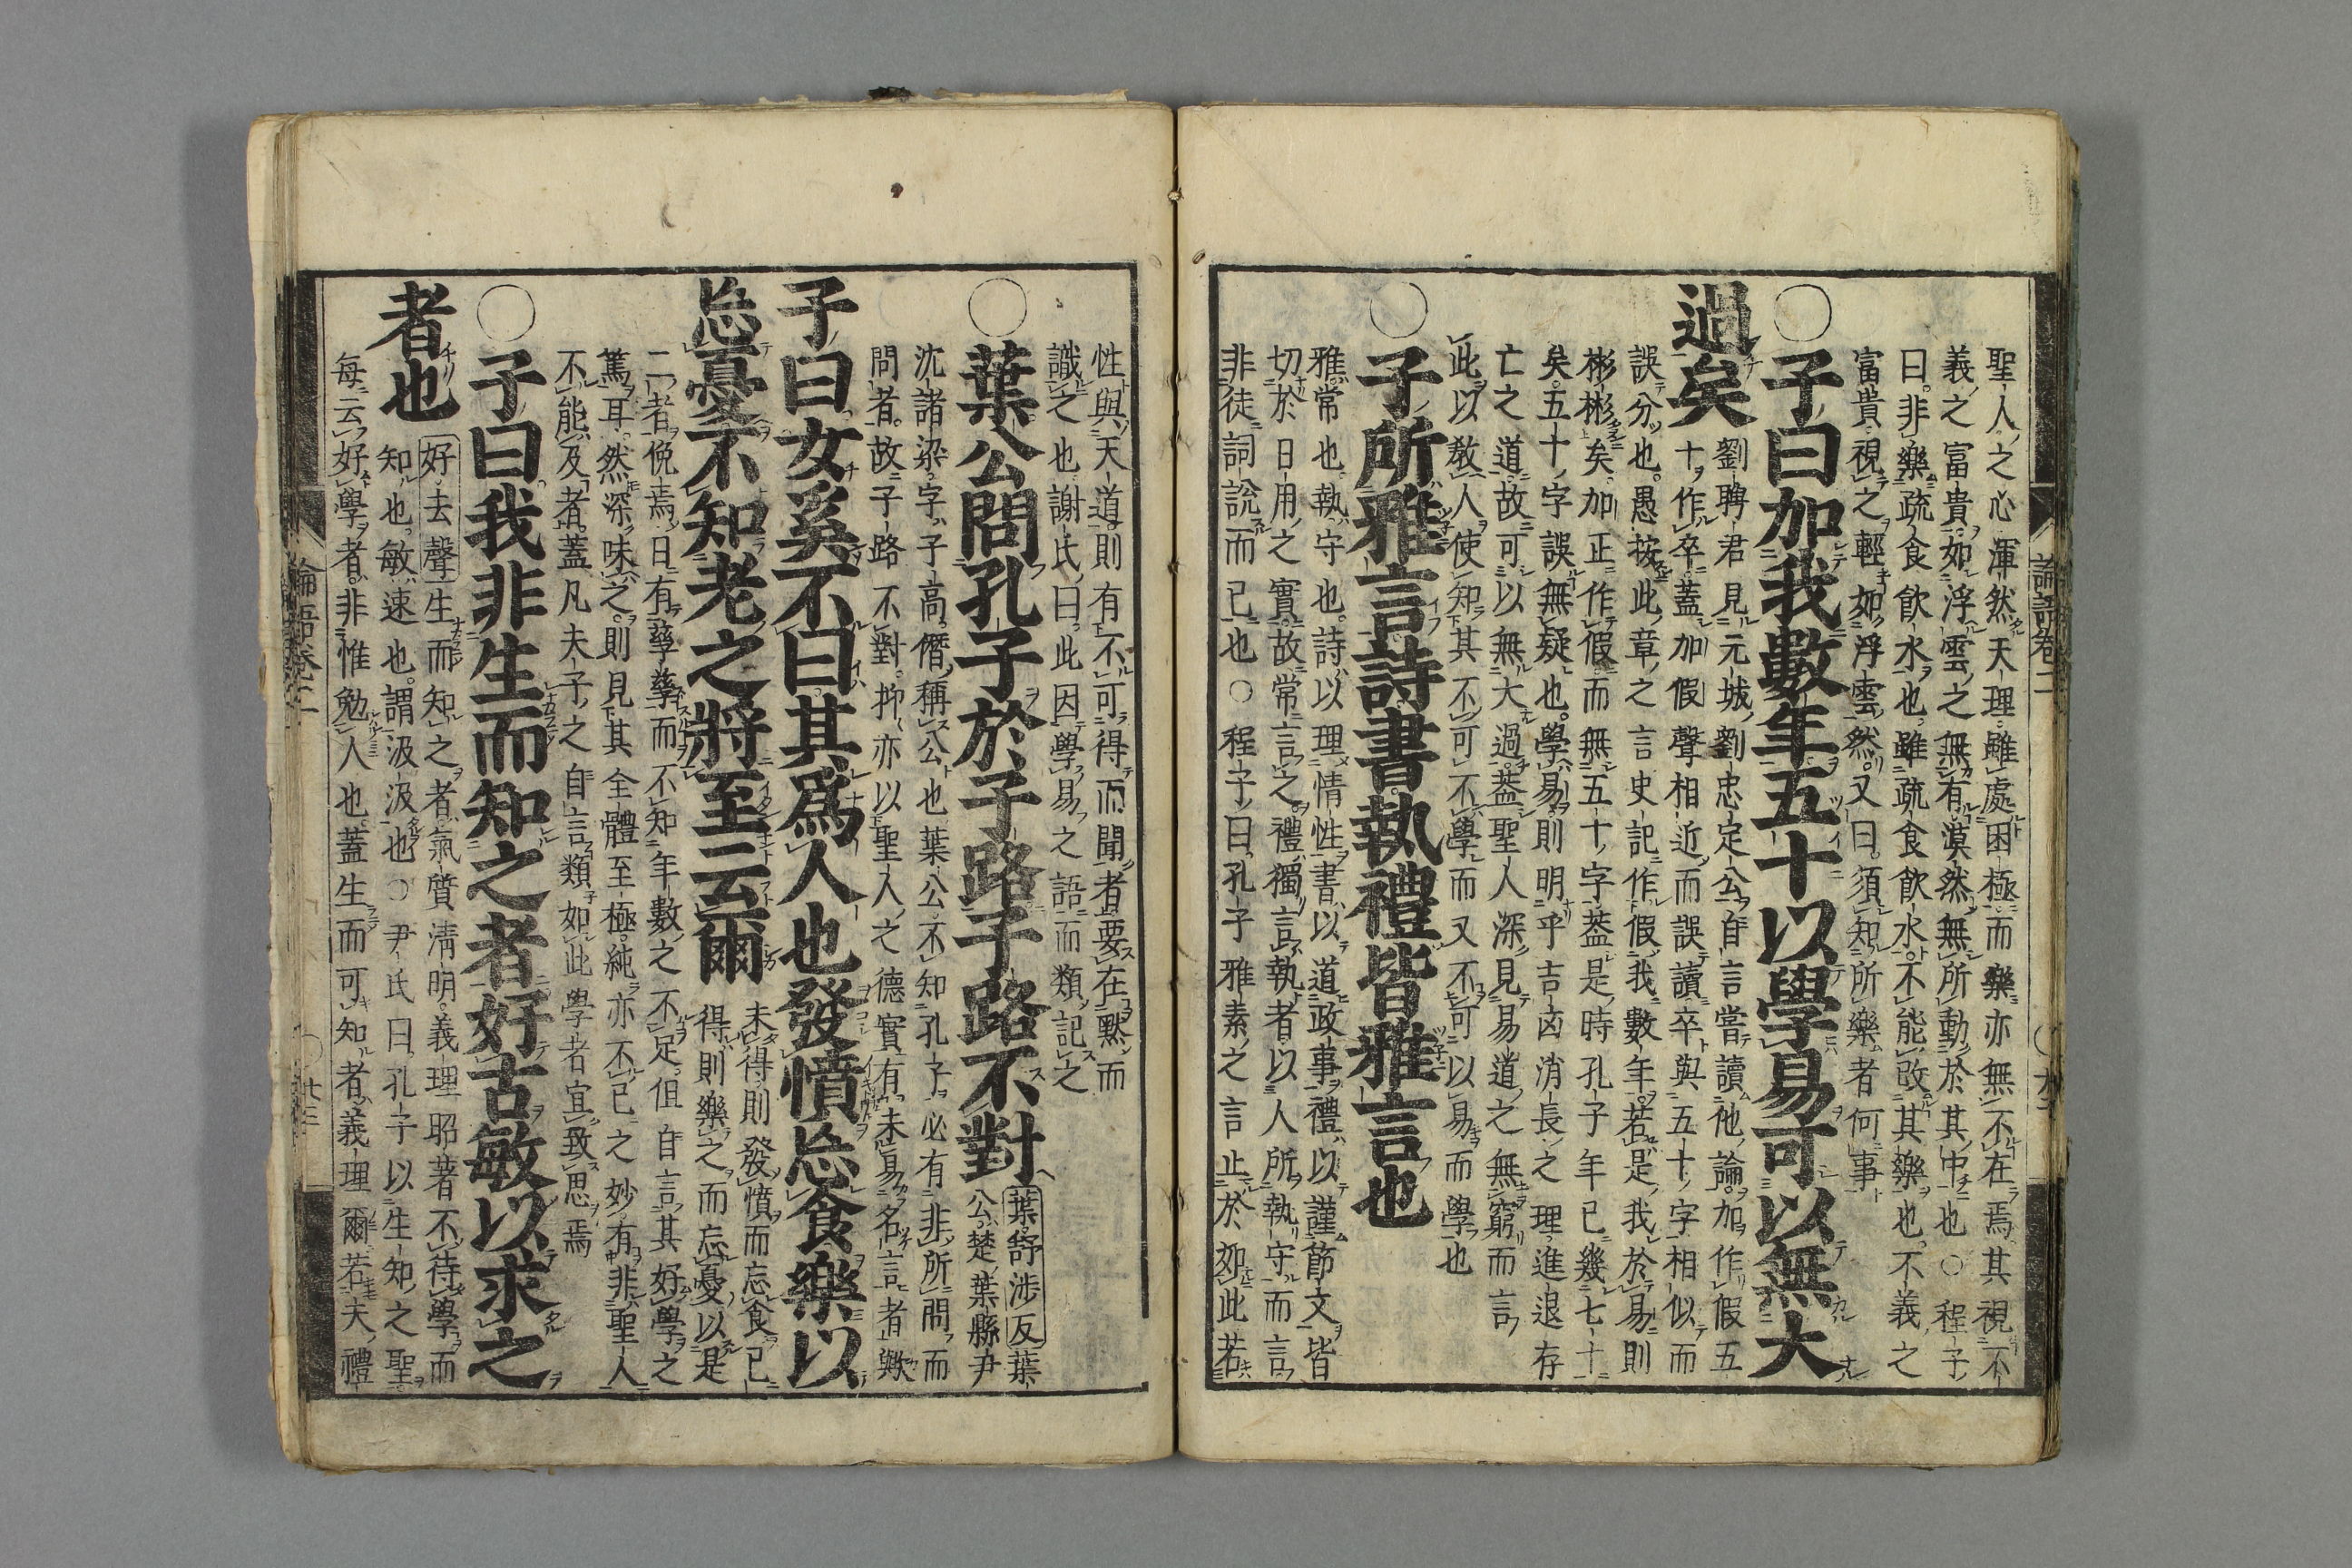 聖人之心渾然天理雖處困極而樂亦無不在焉其視不
義之富貴如浮雲之無有漠然無所動於其中也○程子
曰非樂疏食飲水也雖疏食飲水不能改其樂也不義之
富貴視之輕如浮雲然又曰須知所樂者何事
○子曰加我數年五十以學易可以無大
過矣
劉聘君見元城劉忠定公自言嘗讀他論加作假五
十作卒蓋加假聲相近而誤讀卒與五十字相似而
誤分也愚按此章之言史記作假我數年若是我於易則
彬彬矣加正作假而無五十字蓋是時孔子年已幾七十
矣五十字誤無疑也學易則明乎吉凶消長之理進退存
亡之道故可以無大過蓋聖人深見易道之無窮而言
此以敎人使知其不可不學而又不可以易而學也
○子所雅言詩書執禮皆雅言也
雅常也執守也詩以理情性書以道政事禮以謹節文皆
切於日用之實故常言之禮獨言執者以人所執守而言
非徒詞說而已也○程子曰孔子雅素之言止於如此若
論語卷二
性與天道則有不可得而聞者要在默而
識之也謝氏曰此因學易之語而類記之
○葉公問孔子於子路子路不對
葉舒涉反葉
公楚葉縣尹
沈諸梁字子高僭稱公也葉公不知孔子必有非所問而
問者故子路不對抑亦以聖人之德實有未易名言者歟
子曰女奚不曰其爲人也發憤忘食樂以
忘憂不知老之將至云爾
未得則發憤而忘食已
得則樂之而忘憂以是
二者俛焉日有孳孳而不知年數之不足但自言其好學之
篤耳然深味之則見其全體至極純亦不已之妙有非聖人
不能及者蓋凡夫子之自言類如此學者宜致思焉
○子曰我非生而知之者好古敏以求之
者也
好去聲生而知之者氣質淸明義理昭著不待學而
知也敏速也謂汲汲也○尹氏曰孔子以生知之聖
每云好學者非惟勉人也蓋生而可知者義理爾若夫禮
論語卷二
廿三